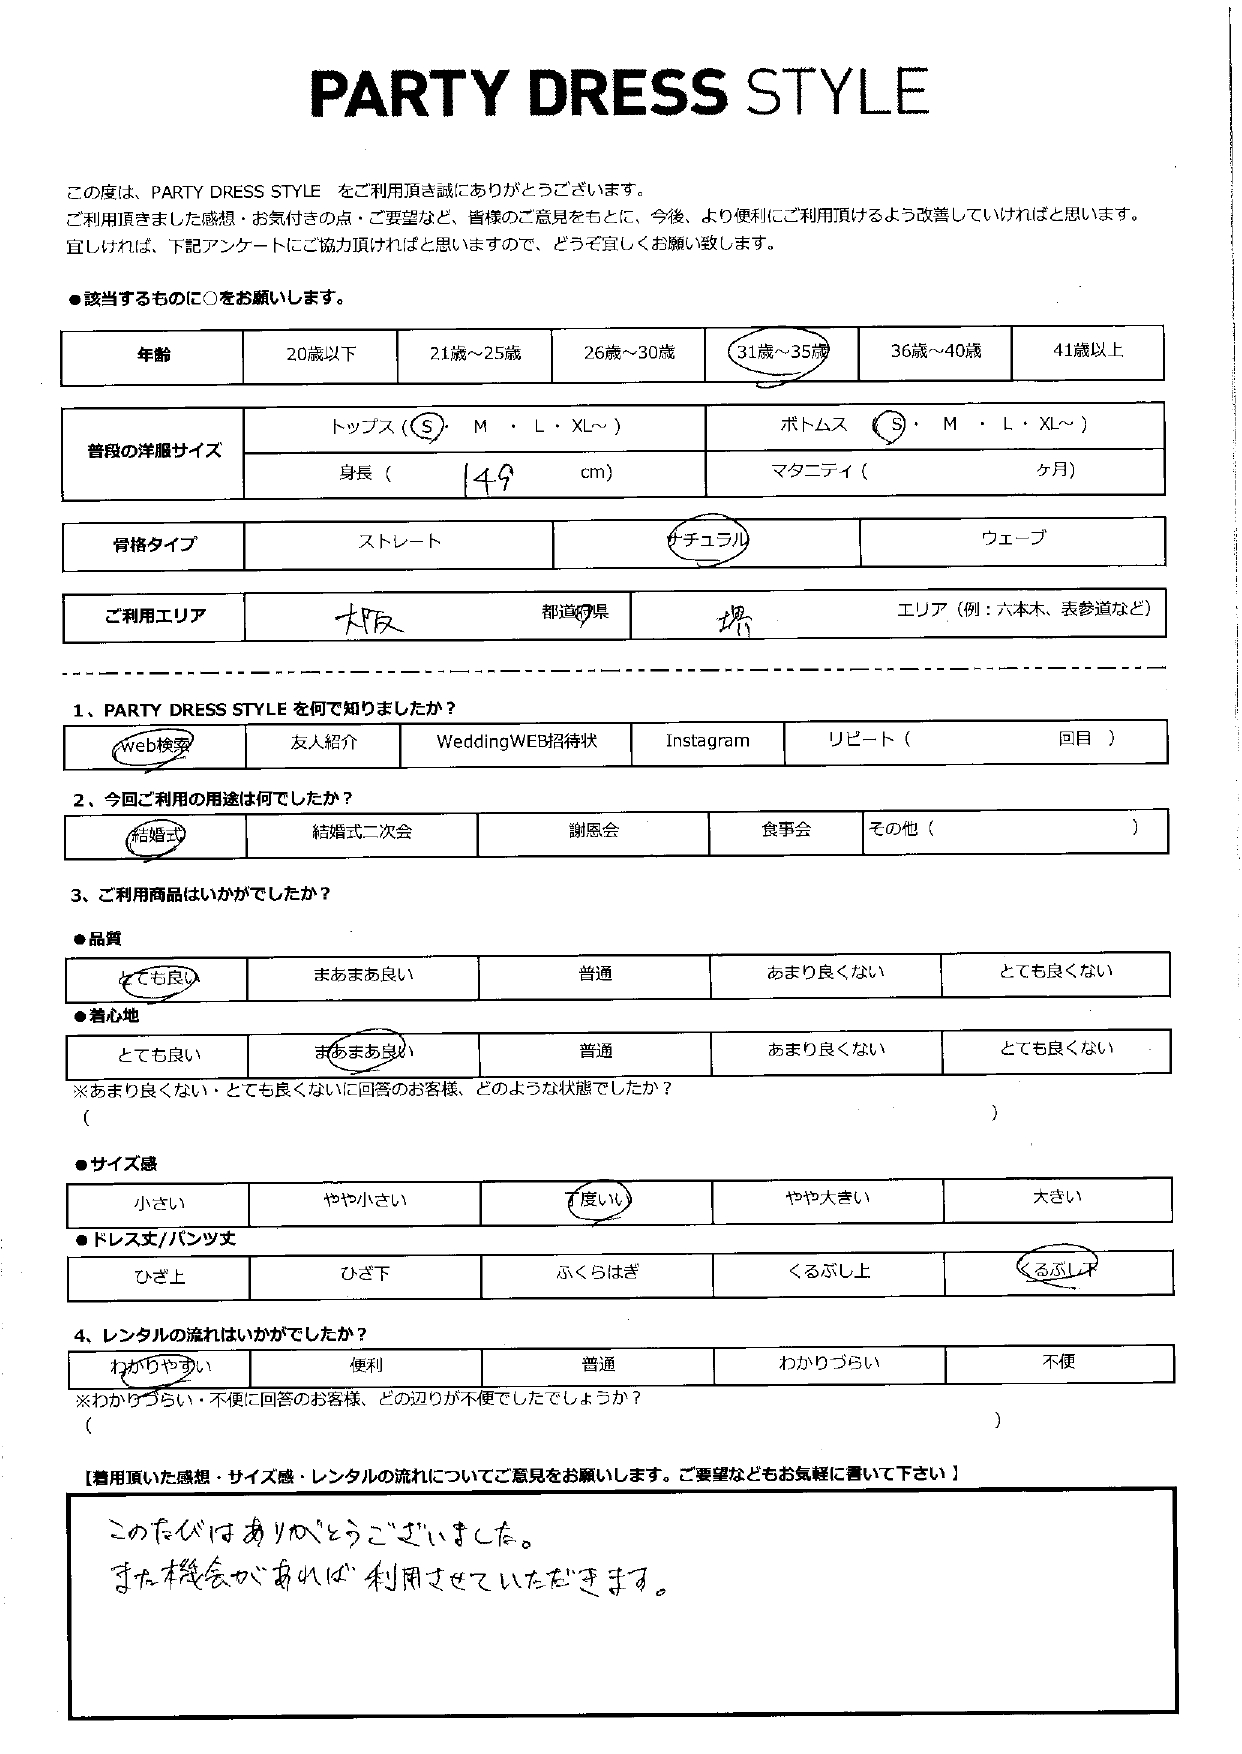 PARTY DRESS STYLE
この度は、PARTY DRESS STYLE をご利用頂き誠にありがとうございます。
ご利用頂きました感想・お気付きの点・ご要望など、皆様のご意見をもとに、今後、より便利にご利用頂けるよう改善していければと思います。
宜しければ、下記アンケートにご協力頂ければと思いますので、どうぞ宜しくお願い致します。
●該当するものに○をお願いします。
年齢 20歳以下 21歳～25歳 26歳～30歳 31歳～35歳 36歳～40歳 41歳以上
普段の洋服サイズ トップス (S・ M ・ L ・ XL～ ) ボトムス ( S ・ M ・ L ・ XL～ )
身長 ( 149 cm) マタニティ ( ケ月)
骨格タイプ ストレート ナチュラル ウェーブ
ご利用エリア 大阪 都道府県 堺 エリア（例：六本木、表参道など）
1、PARTY DRESS STYLE を何で知りましたか？
web検索 友人紹介 WeddingWEB招待状 Instagram リピート ( 回目 )
2、今回ご利用の用途は何でしたか？
結婚式 結婚式二次会 謝恩会 食事会 その他 ( )
3、ご利用商品はいかがでしたか？
●品質
とても良い まあまあ良い 普通 あまり良くない とても良くない
●着心地
とても良い まあまあ良い 普通 あまり良くない とても良くない
※あまり良くない・とても良くないに回答のお客様、どのような状態でしたか？
( )
●サイズ感
小さい やや小さい 丁度いい やや大きい 大きい
●ドレス丈/パンツ丈
ひざ上 ひざ下 ふくらはぎ くるぶし上 くるぶし下
4、レンタルの流れはいかがでしたか？
わかりやすい 便利 普通 わかりづらい 不便
※わかりづらい・不便に回答のお客様、どの辺りが不便でしたでしょうか？
( )
【着用頂いた感想・サイズ感・レンタルの流れについてご意見をお願いします。ご要望などもお気軽に書いて下さい】
このたびはありがとうございました。
また機会があれば利用させていただきます。